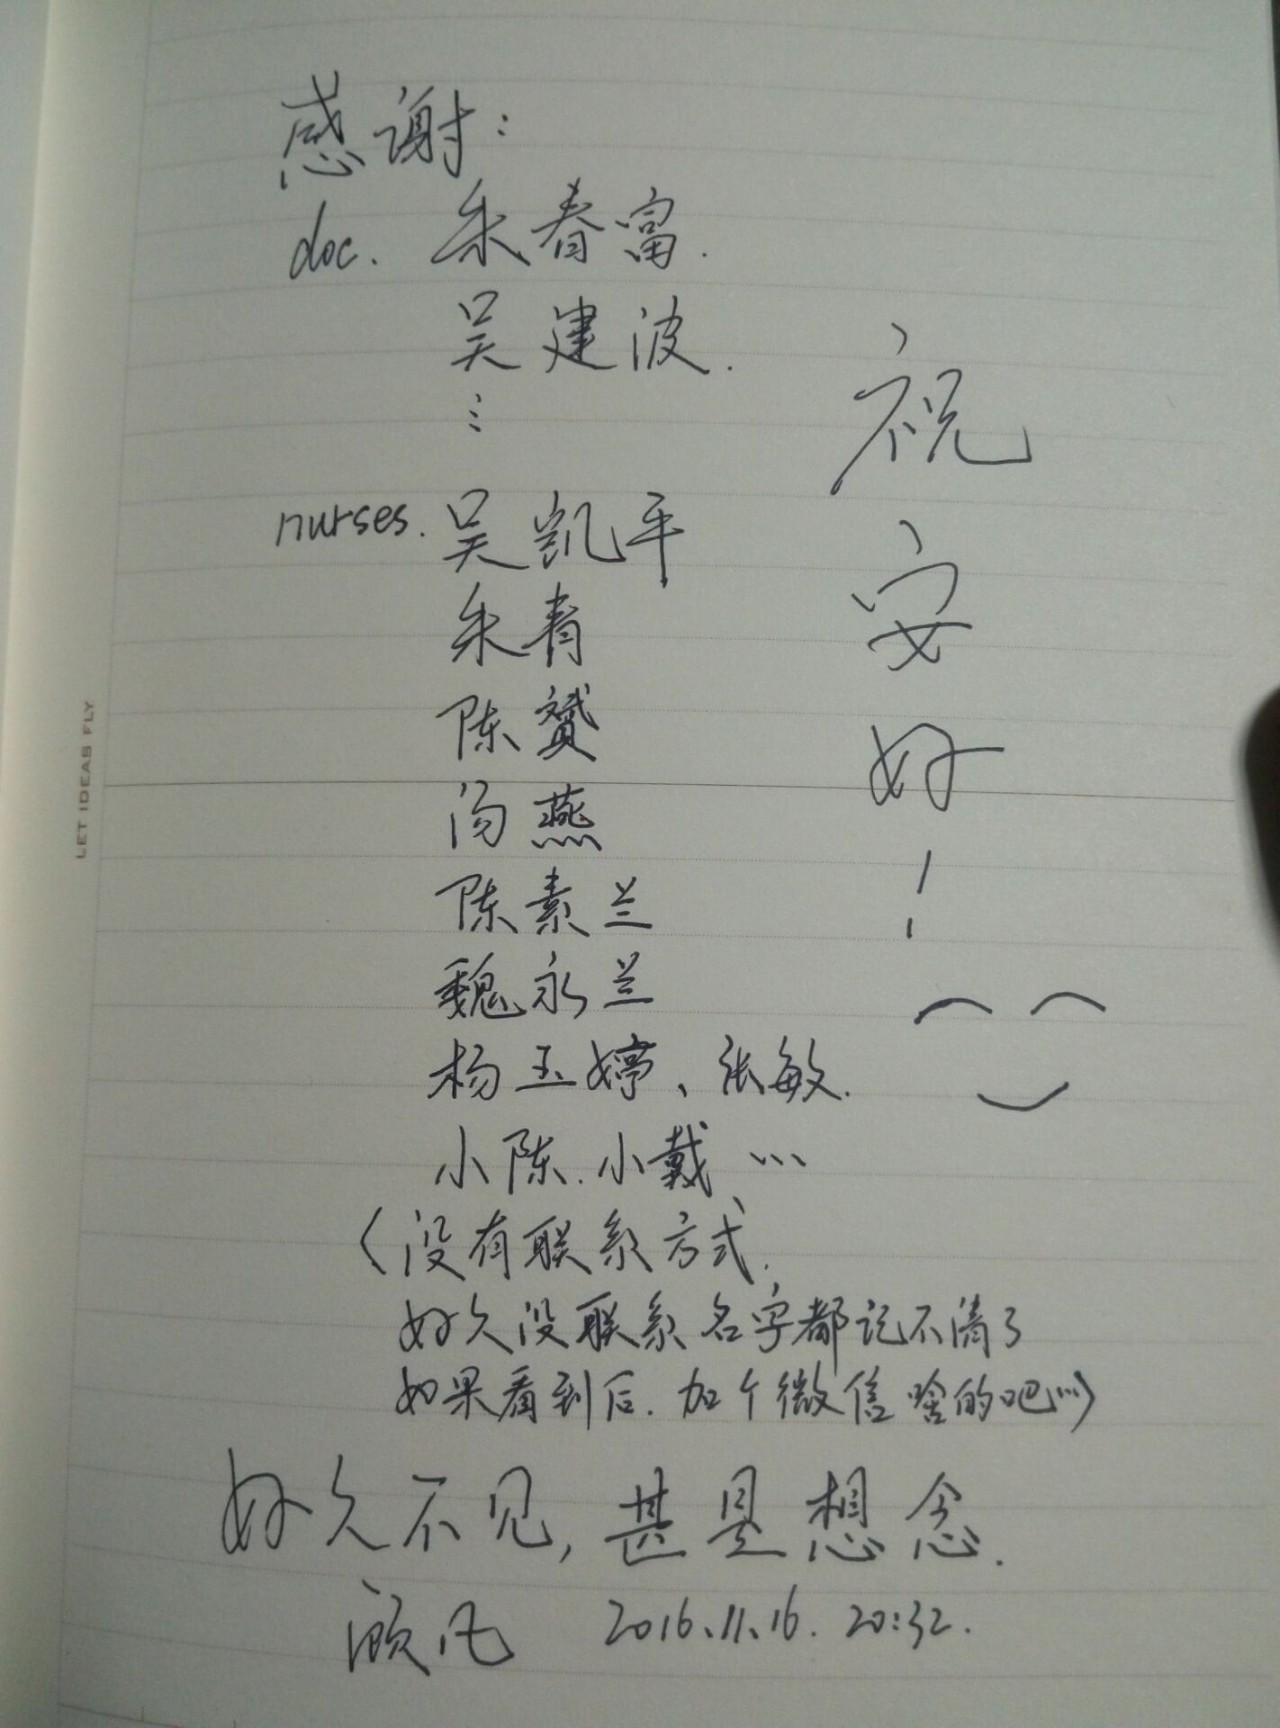 感谢：
doc. 朱春富.
吴建波.
⋮
nurses. 吴凯平
朱青
陈赟
汤燕
陈素兰
魏永兰
杨玉婷、张敏.
小陈.小戴…
（没有联系方式.
好久没联系名字都记不清了
如果看到后.加个微信啥的吧…）
好久不见，甚是想念.
顾凡 2016.11.16. 20:32.
祝
安
好
！
LET IDEAS FLY